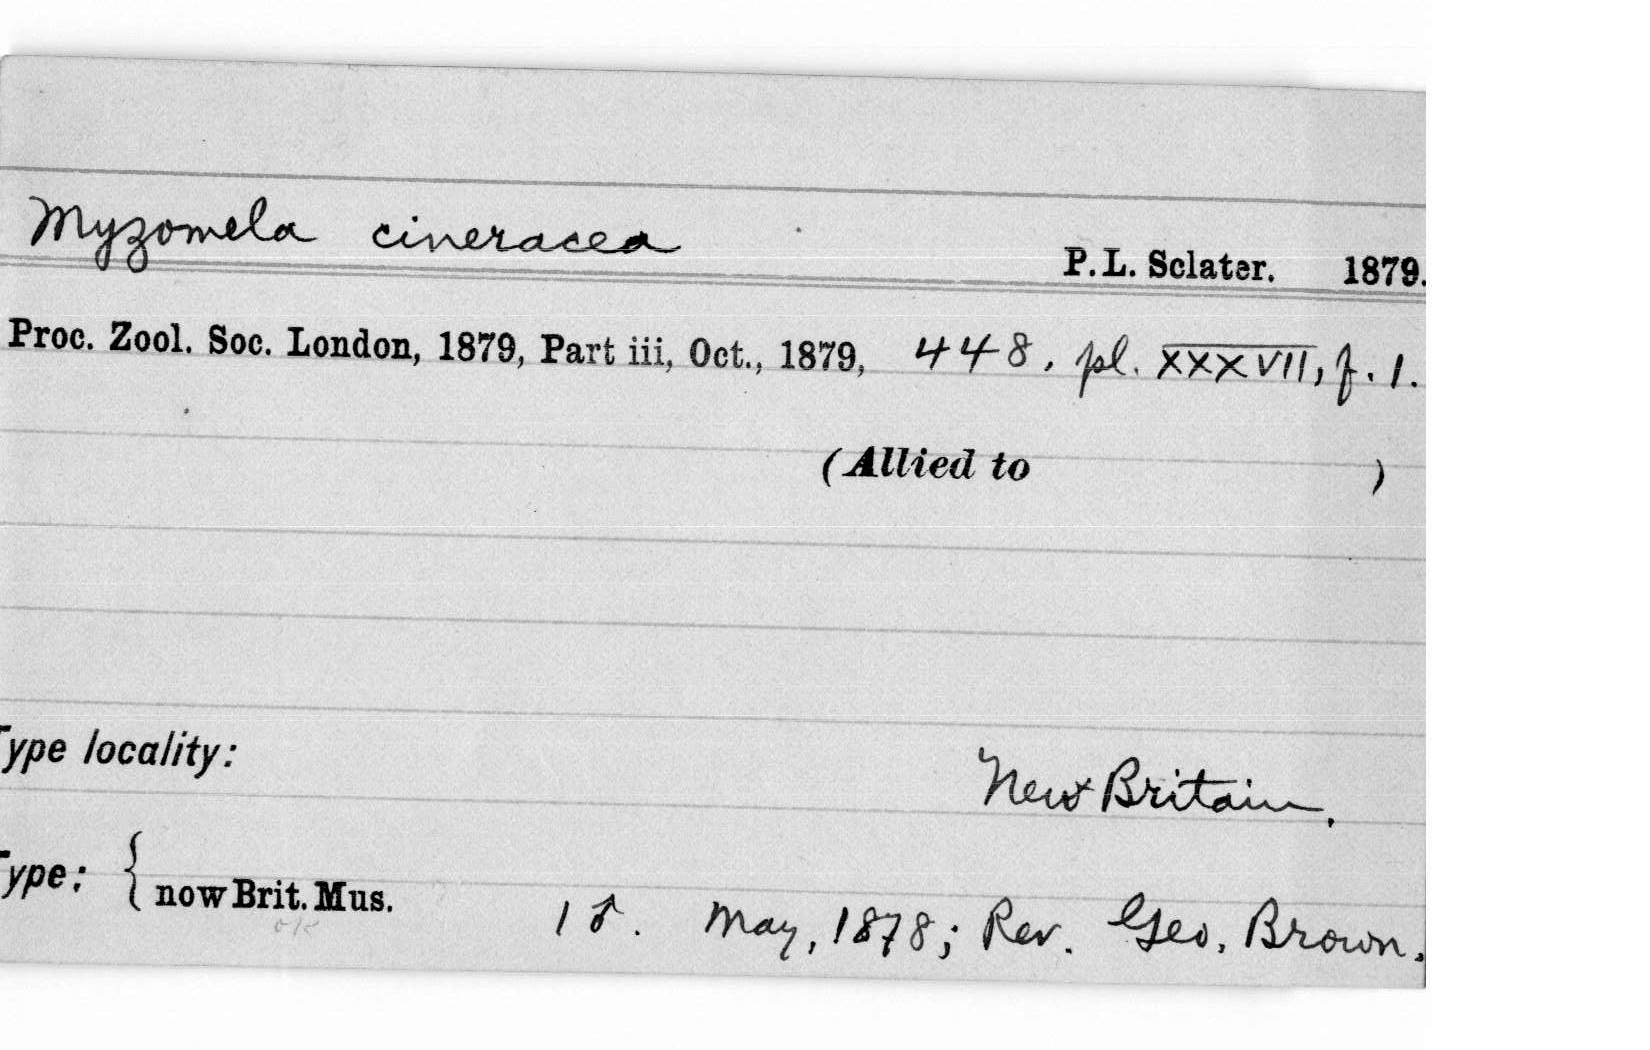 Myzomela cineracea
P. L. Sclater. 1879.
Proc. Zool. Soc. London, 1879, Part iii, Oct., 1879, 448, pl. XXXVII, f. 1.
(Allied to )
Type locality:
New Britain.
Type: { now Brit. Mus. 1 ♂. May, 1878; Rev. Geo. Brown.
ok